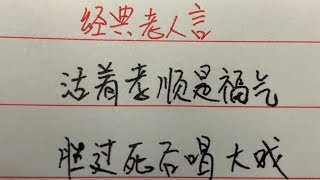 经典老人言
活着孝顺是福气
胜过死后唱大戏